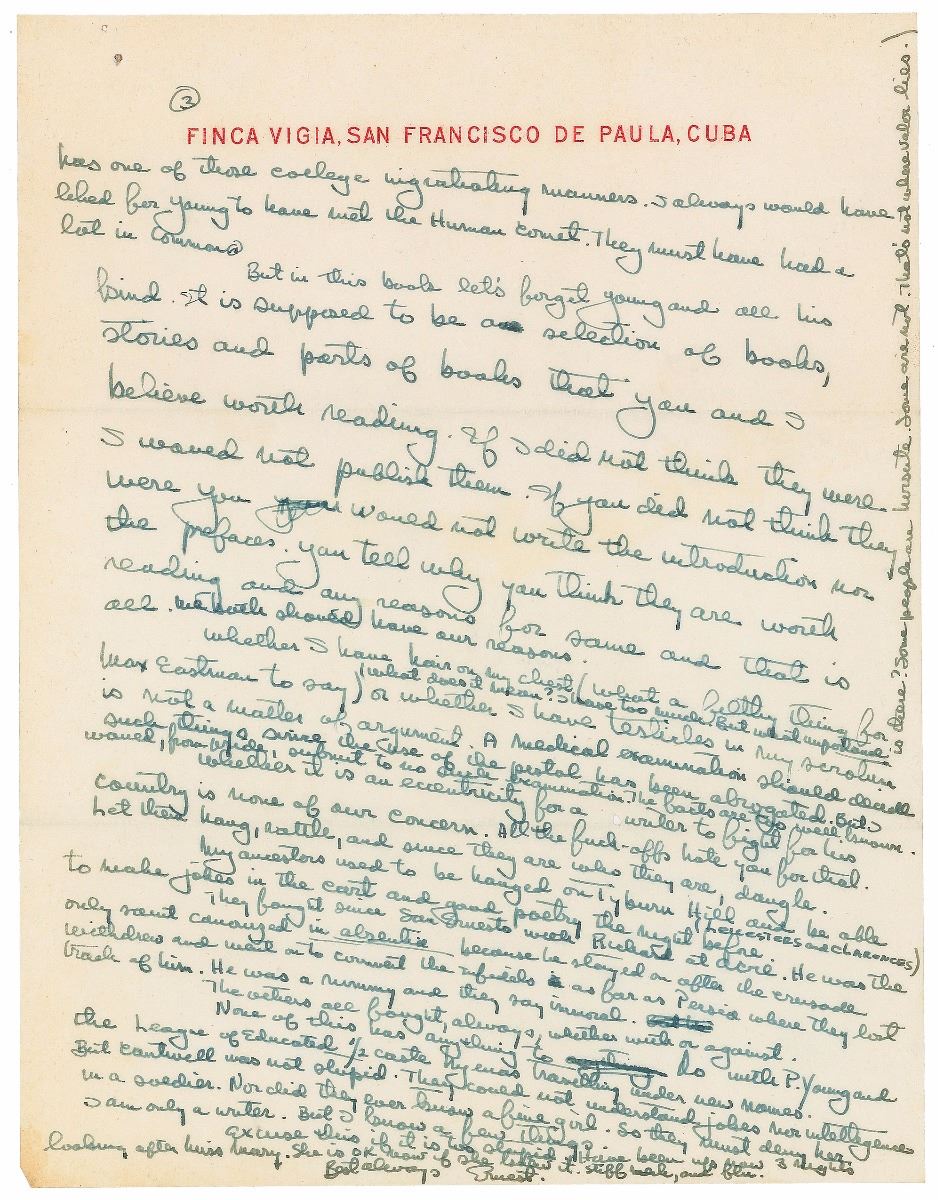 ③
FINCA VIGIA, SAN FRANCISCO DE PAULA, CUBA
has one of those college ingratiating manners. I always would have
liked for Young to have met the Human Comet. They must have had a
lot in common.
But in this book let's forget Young and all his
kind. It is supposed to be a selection of books,
stories and parts of books that you and I
believe worth reading. If I did not think they were
I would not publish them. If you did not think they
were you would not write the introduction nor
the prefaces. You tell why you think they are worth
reading and any reasons for same and that is
all. We both should have our reasons.
Whether I have hair on my chest (What a filthy thing for
Max Eastman to say) (What does it mean? I have too much. But what importance
is there? Some people are hirsute. Some are not. That's not where valor lies.)
or whether I have testicles in my scrotum
is not a matter of argument. A medical examination should decide
such things, since the use of the pistol has been abrogated. But I
would, from pride, submit to no such examination. The facts are too well known.
Whether it is an eccentricity for a writer to fight for his
country is none of our concern. All the fuck-offs hate you for that.
Let them hang, rattle, and since they are who they are, dangle.
My ancestors used to be hanged on Tyburn Hill and be able
to make jokes in the cart and good poetry the night before.
(Leicesters and Clarences)
They fought since San Ernesto with Richard at Acre. He was the
only saint canonized in absentia because he stayed on after the crusade
withdrew and went on to convert the infidels as far as Persia where they lost
track of him. He was a rummy and they say immoral.
The others all fought, always, whether with or against.
None of this has anything to do with P. Young and
the League of Educated 1/2 caste travelling under new names.
But Cantwell was not stupid. They could not understand jokes nor intelligence
in a soldier. Nor did they ever know a fine girl. So they must deny her.
I am only a writer. But I know a few things.
Excuse this if it is stupid. Have been up now 3 nights
looking after Miss Mary. She is OK now if she takes it. Stiff neck, and flu.
Best always
Ernest.